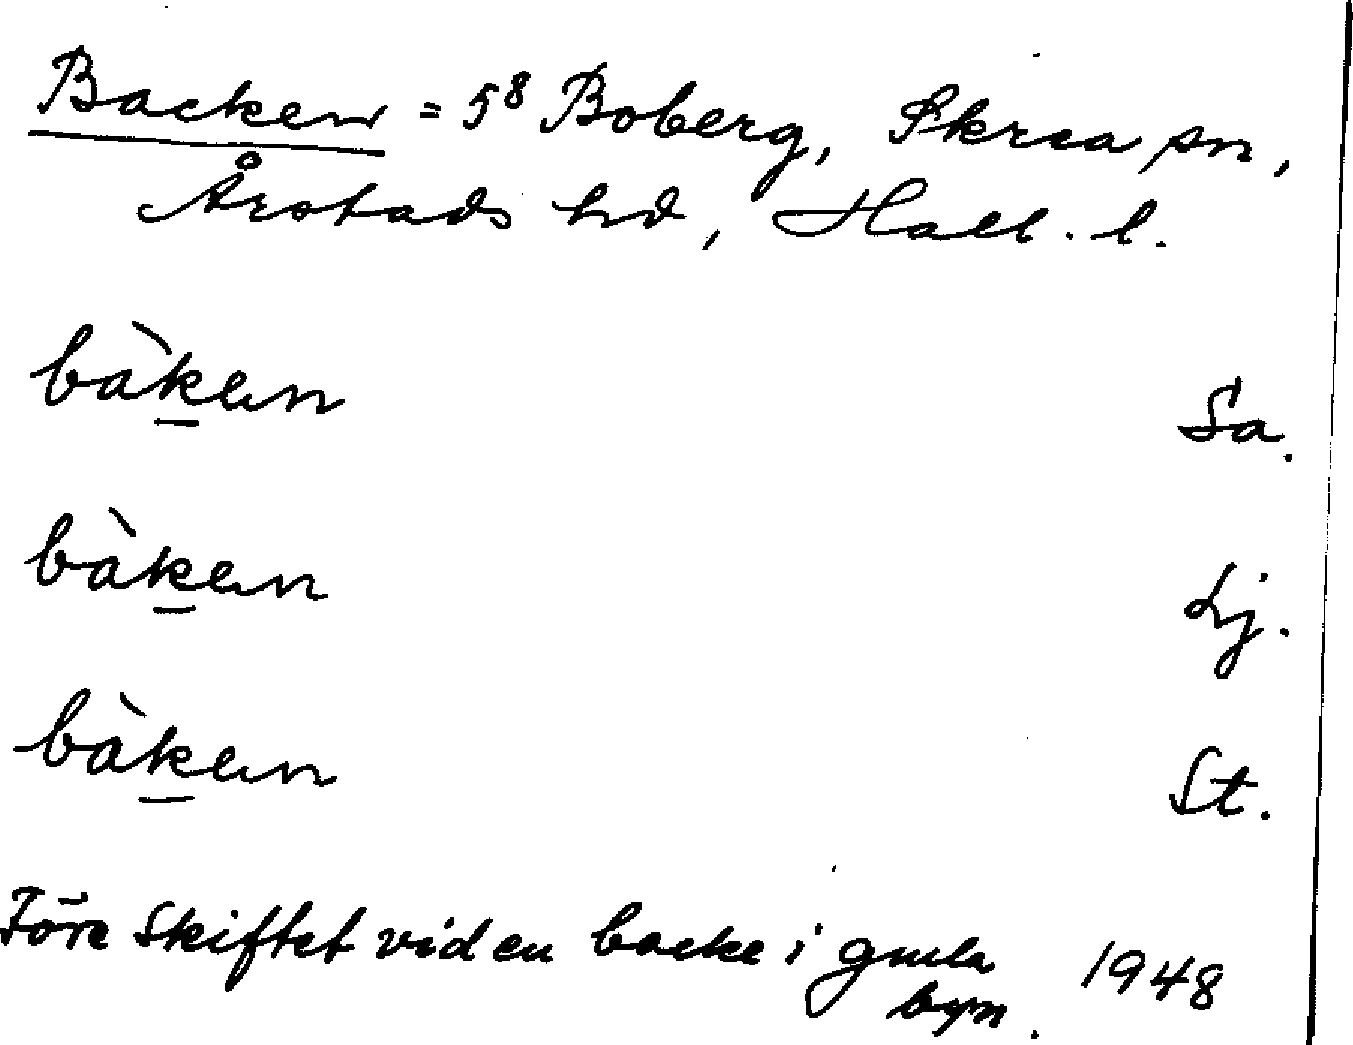 Backen = 5⁸ Boberg, Skrea sn,
Årstads hd, Hall. l.
bàk̲en Sa.
bàk̲en Lj.
bàk̲en St.
Före Skiftet vid en backe i gmla
byn. 1948